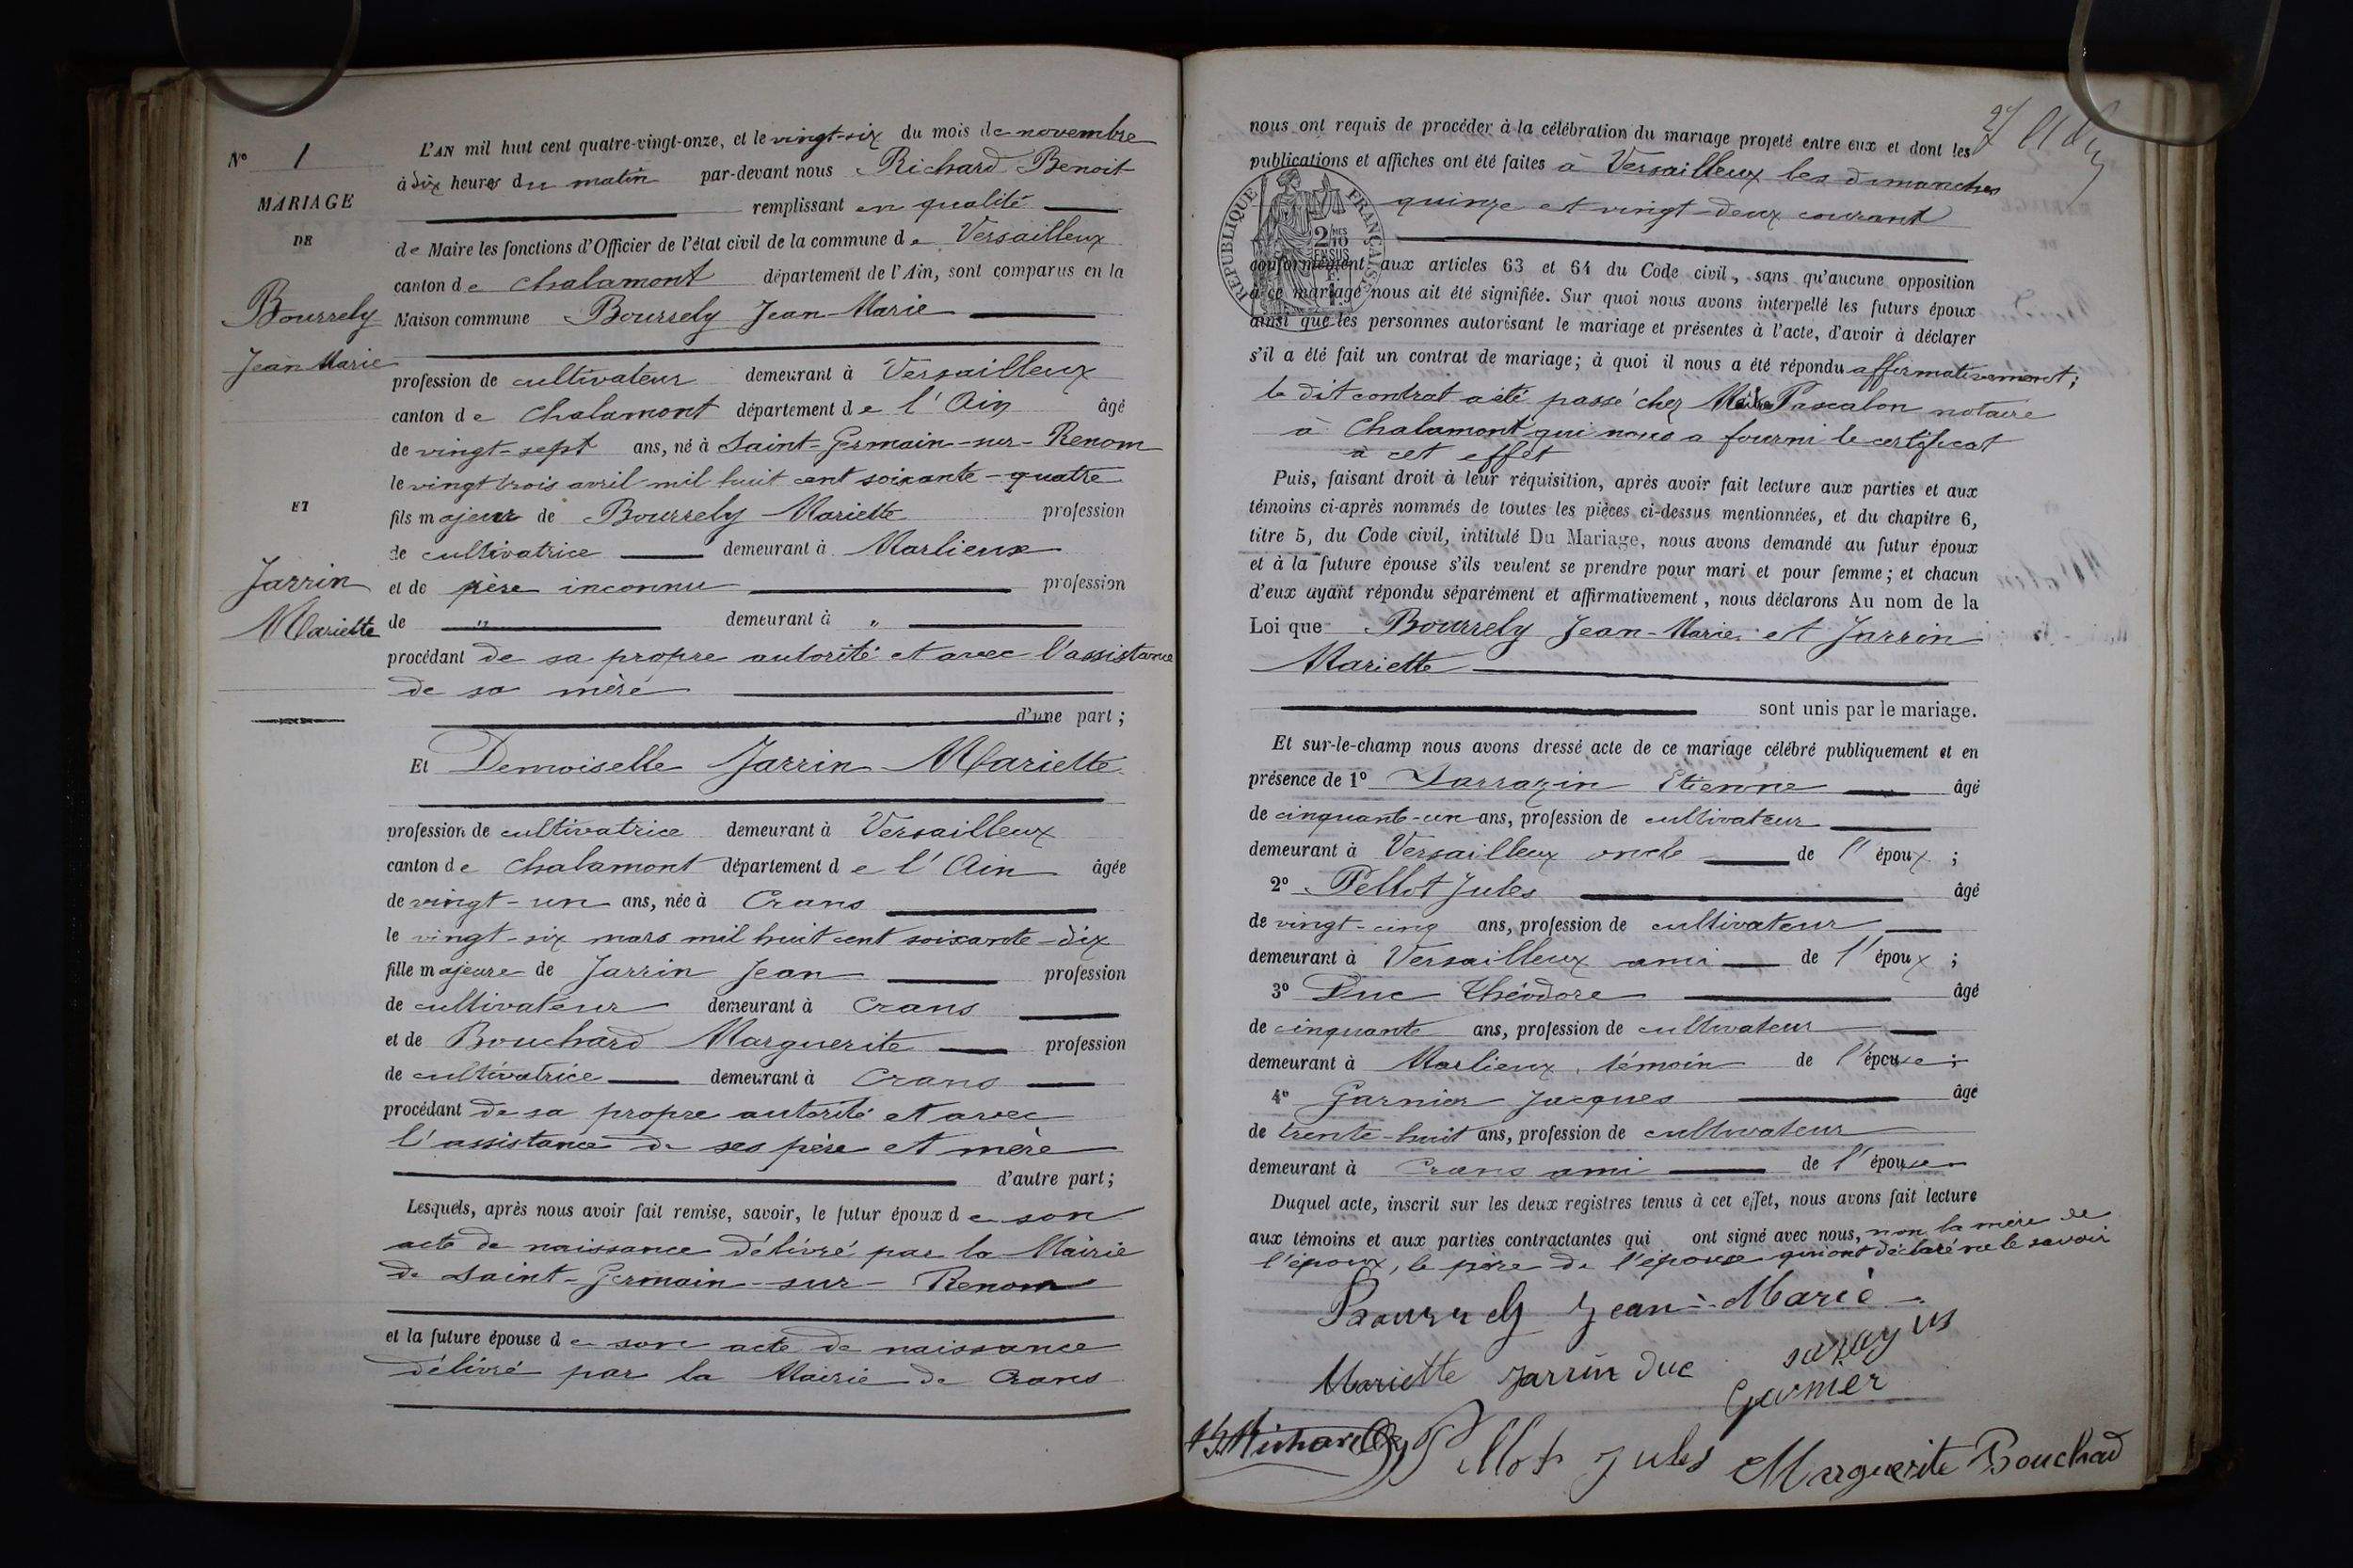 N° 1
MARIAGE
DE
Bourrely
Jean Marie
ET
Jarrin
Mariette
L'AN mil huit cent quatre-vingt-onze, et le vingt-six du mois de novembre
à dix heures du matin par-devant nous Richard Benoit
remplissant en qualité
de Maire les fonctions d'Officier de l'état civil de la commune de Versailleux
canton de Chalamont département de l'Ain, sont comparus en la
Maison commune Bourrely Jean-Marie
profession de cultivateur demeurant à Versailleux
canton de Chalamont département de l'Ain âgé
de vingt-sept ans, né à Saint-Germain-sur-Renom
le vingt trois avril mil huit cent soixante-quatre
fils majeur de Bourrely Mariette profession
de cultivatrice demeurant à Marlieux
et de père inconnu profession
de " demeurant à "
procédant de sa propre autorité et avec l'assistance
de sa mère
d'une part;
Et Demoiselle Jarrin Mariette
profession de cultivatrice demeurant à Versailleux
canton de Chalamont département de l'Ain âgée
de vingt-un ans, née à Crans
le vingt-six mars mil huit cent soixante-dix
fille majeure de Jarrin Jean profession
de cultivateur demeurant à Crans
et de Bouchard Marguerite profession
de cultivatrice demeurant à Crans
procédant de sa propre autorité et avec
l'assistance de ses père et mère
d'autre part;
Lesquels, après nous avoir fait remise, savoir, le futur époux de son
acte de naissance délivré par la Mairie
de Saint-Germain-sur-Renom
et la future épouse de son acte de naissance
délivré par la Mairie de Crans
nous ont requis de procéder à la célébration du mariage projeté entre eux et dont les
publications et affiches ont été faites à Versailleux les dimanches
quinze et vingt-deux courant
RÉPUBLIQUE FRANÇAISE
2/10 MES
EN SUS
conformément aux articles 63 et 64 du Code civil, sans qu'aucune opposition
à ce mariage nous ait été signifiée. Sur quoi nous avons interpellé les futurs époux
ainsi que les personnes autorisant le mariage et présentes à l'acte, d'avoir à déclarer
s'il a été fait un contrat de mariage; à quoi il nous a été répondu affirmativement;
le dit contrat a été passé chez Pascalon notaire
à Chalamont qui nous a fourni le certificat
à cet effet
Puis, faisant droit à leur réquisition, après avoir fait lecture aux parties et aux
témoins ci-après nommés de toutes les pièces ci-dessus mentionnées, et du chapitre 6,
titre 5, du Code civil, intitulé Du Mariage, nous avons demandé au futur époux
et à la future épouse s'ils veulent se prendre pour mari et pour femme; et chacun
d'eux ayant répondu séparément et affirmativement, nous déclarons Au nom de la
Loi que Bourrely Jean-Marie et Jarrin
Mariette
sont unis par le mariage.
Et sur-le-champ nous avons dressé acte de ce mariage célébré publiquement et en
présence de 1° Sarrazin Etienne âgé
de cinquante-un ans, profession de cultivateur
demeurant à Versailleux oncle de l'époux;
2° Pellot Jules âgé
de vingt-cinq ans, profession de cultivateur
demeurant à Versailleux ami de l'époux;
3° Duc Théodore âgé
de cinquante ans, profession de cultivateur
demeurant à Marlieux témoin de l'épouse;
4° Garnier Jacques âgé
de trente-huit ans, profession de cultivateur
demeurant à Crans ami de l'épouse
Duquel acte, inscrit sur les deux registres tenus à cet effet, nous avons fait lecture
aux témoins et aux parties contractantes qui ont signé avec nous, non la mère de
l'époux, le père de l'épouse qui ont déclaré ne le savoir
Bourrely Jean-Marie
Mariette Jarrin Duc
Garnier
Richard Pellot Jules Marguerite Bouchad